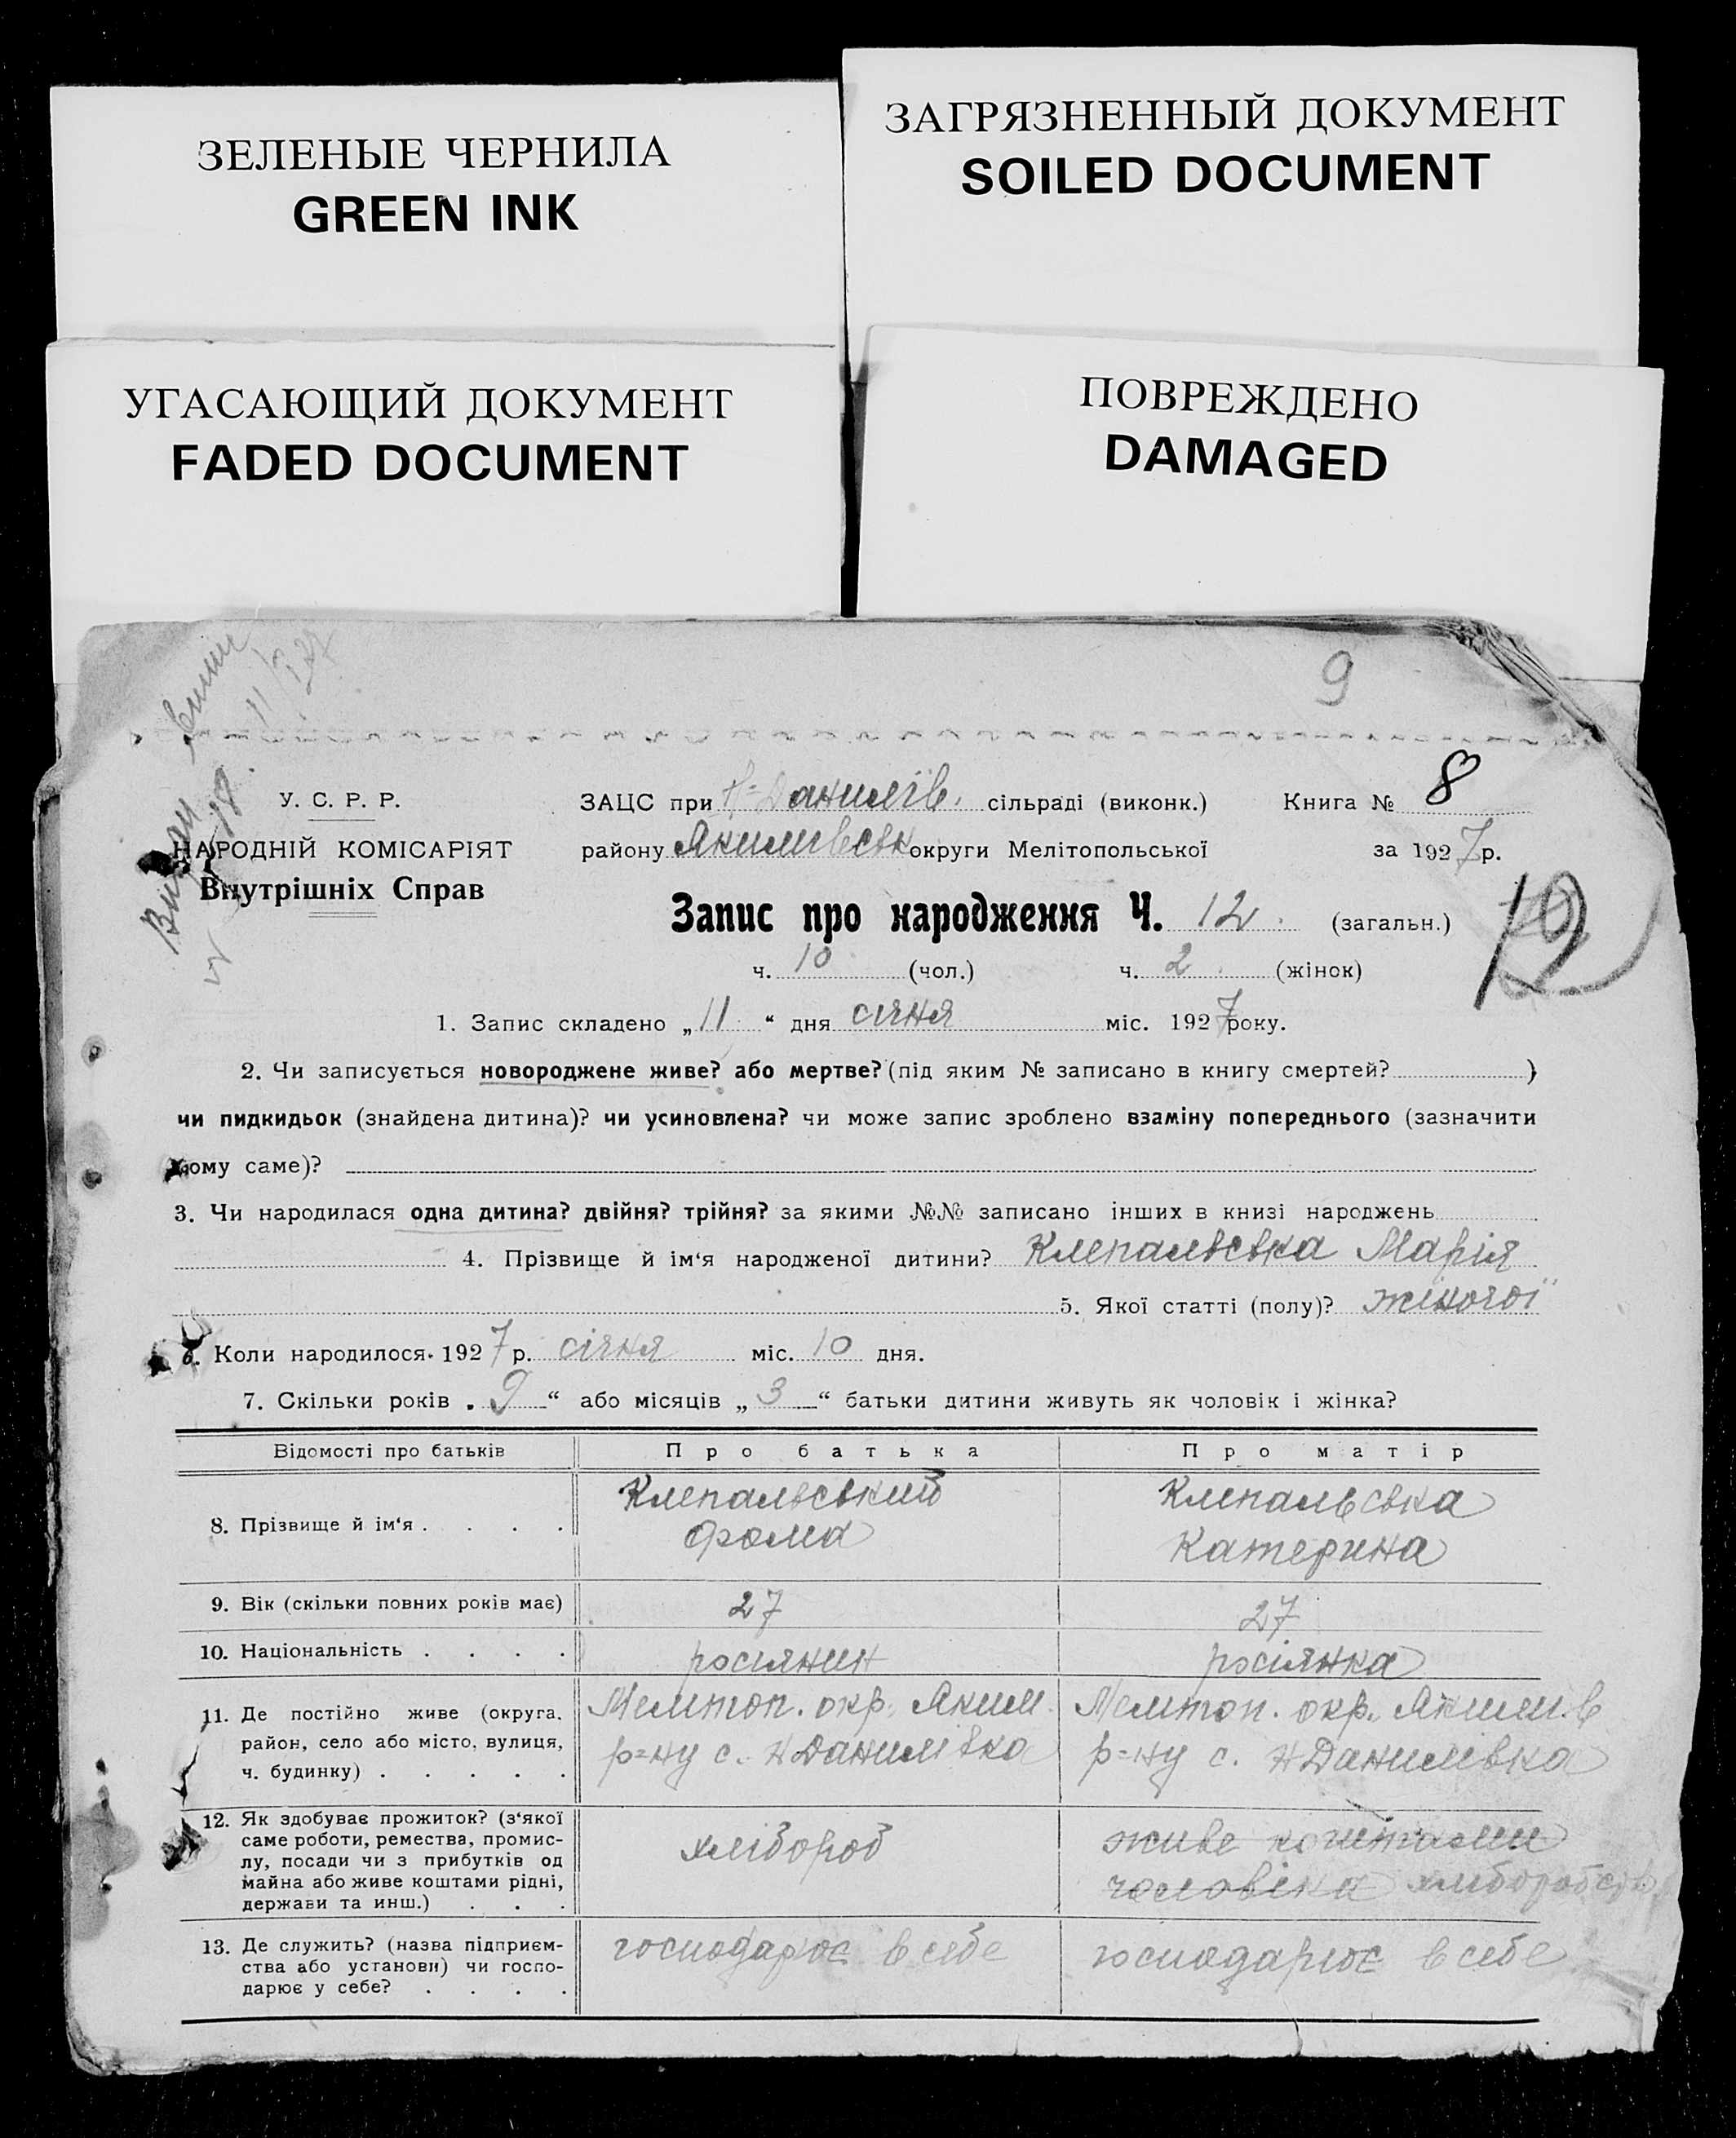 ЗЕЛЕНЫЕ ЧЕРНИЛА
GREEN INK
ЗАГРЯЗНЕННЫЙ ДОКУМЕНТ
SOILED DOCUMENT
УГАСАЮЩИЙ ДОКУМЕНТ
FADED DOCUMENT
ПОВРЕЖДЕНО
DAMAGED
9
У. С. Р. Р.
НАРОДНІЙ КОМІСАРІЯТ
Внутрішніх Справ
ЗАЦС при Н=Данилів. сільраді (виконк.) Книга № 8
району Якимівськ округи Мелітопольської за 1927 р.
Запис про народження Ч. 12. (загальн.)
ч. 10 (чол.) ч. 2 (жінок)
1. Запис складено „11“ дня січня міс. 1927 року.
2. Чи записується новороджене живе? або мертве? (під яким № записано в книгу смертей? )
чи пидкидьок (знайдена дитина)? чи усиновлена? чи може запис зроблено взаміну попереднього (зазначити
кому саме)?
3. Чи народилася одна дитина? двійня? трійня? за якими №№ записано інших в книзі народжень
4. Прізвище й ім‘я народженої дитини? Клепальська Марія
5. Якої статті (полу)? жіночої
6. Коли народилося 1927 р. січня міс. 10 дня.
7. Скільки років „9“ або місяців „3“ батьки дитини живуть як чоловік і жінка?
Відомості про батьків Про батька Про матір
8. Прізвище й ім‘я . . . . Клепальський Фома Клепальська Катерина
9. Вік (скільки повних років має) 27 27
10. Національність . . . . росіянин росіянка
11. Де постійно живе (округа, район, село або місто, вулиця, ч. будинку) . . . . .
Мелітоп. окр. Яким. р=ну с. НДанилівка
Мелітоп. окр. Якимів р=ну с. НДанилівка
12. Як здобуває прожиток? (з‘якої саме роботи, ремества, промислу, посади чи з прибутків од майна або живе коштами рідні, держави та инш.) . . .
хлібороб
живе коштами чоловіка
13. Де служить? (назва підприємства або установи) чи господарює у себе? . . . .
господарює в себе
господарює в себе